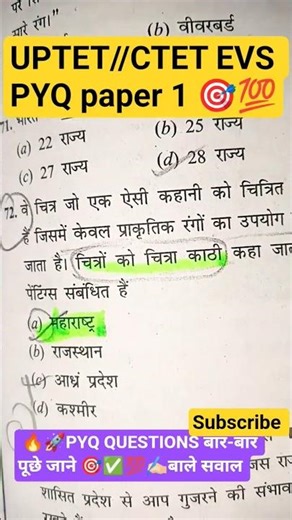 सारे रंग।"
(b) वीवरबर्ड
UPTET//CTET EVS
PYQ paper 1 🎯💯
71. भारत
(a) 22 राज्य
(b) 25 राज्य
(c) 27 राज्य
(d) 28 राज्य
72. वे चित्र जो एक ऐसी कहानी को चित्रित
हैं जिसमें केवल प्राकृतिक रंगों का उपयोग
जाता है। चित्रों को चित्रा काठी कहा जा
पेंटिंग्स संबंधित हैं
(a) महाराष्ट्र
(b) राजस्थान
(c) आध्रं प्रदेश
(d) कश्मीर
Subscribe
🔥🚀PYQ QUESTIONS बार-बार
पूछे जाने 🎯✅💯✍🏻बाले सवाल
जस रा
शासित प्रदेश से आप गुजरने की संभाव